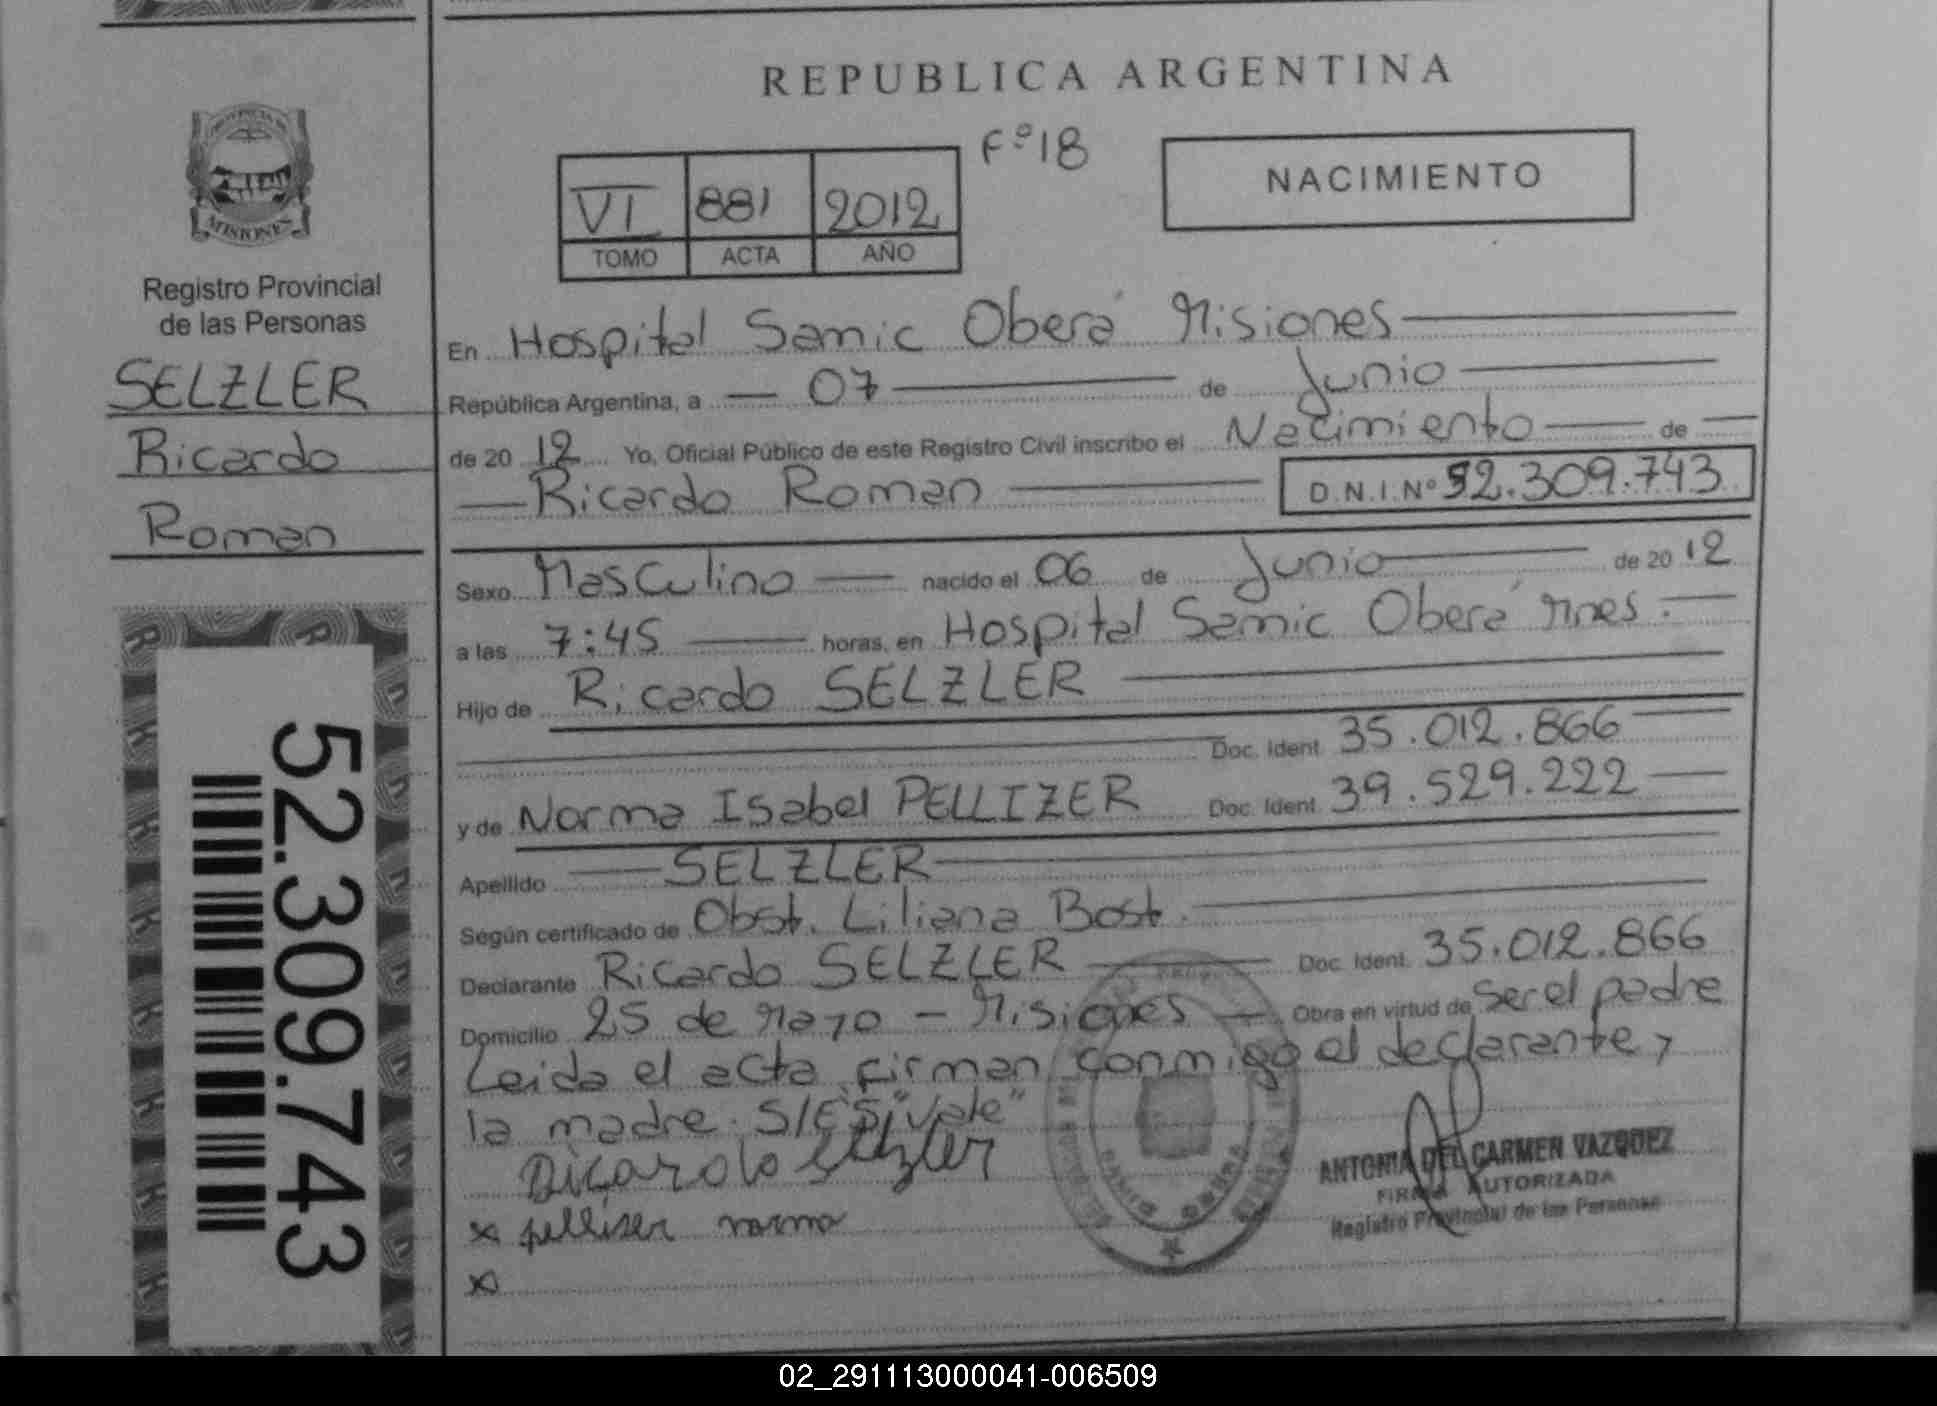 REPUBLICA ARGENTINA
PROVINCIA DE
MISIONES
Registro Provincial
de las Personas
SELZLER
Ricardo
Roman
52.309.743
Fº18
VI 881 2012
TOMO ACTA AÑO
NACIMIENTO
En Hospital Samic Oberá Misiones
República Argentina, a 07 de Junio
de 2012 Yo, Oficial Público de este Registro Civil inscribo el Nacimiento de
Ricardo Roman D.N.I.Nº 52.309.743
Sexo Masculino nacido el 06 de Junio de 2012
a las 7:45 horas, en Hospital Samic Oberá Mnes.
Hijo de Ricardo SELZLER
Doc. Ident. 35.012.866
y de Norma Isabel PELLIZER Doc. Ident. 39.529.222
Apellido SELZLER
Según certificado de Obst. Liliana Bost.
Declarante Ricardo SELZLER Doc. Ident. 35.012.866
Domicilio 25 de Mayo - Misiones Obra en virtud de ser el padre
Leida el acta firman conmigo el declarante y
la madre. S/E 5 "Vale"
Ricardo Selzler
x pelliser norma
x
ANTONIA DEL CARMEN VAZQUEZ
FIRMA AUTORIZADA
Registro Provincial de las Personas
02_291113000041-006509